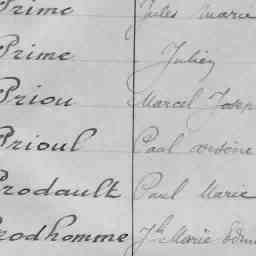 Prime Jules Marie
Prime Julien
Priou Marcel Josep
Prioul Paul Arsène
Prodault Paul Marie
Prodhomme Jh Marie Edm